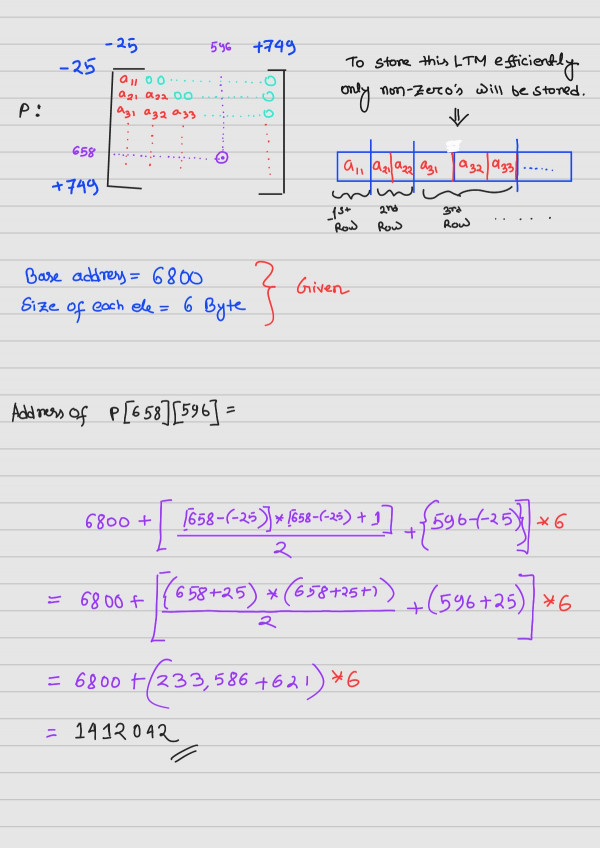 -25 596 +749
-25
P:
a11 0 0 ........ 0
a21 a22 0 0 ...... 0
a31 a32 a33 ...... 0
658
+749
To store this LTM efficiently
only non-zero's will be stored.
⇓
a11 a21 a22 a31 a32 a33 ......
1st Row 2nd Row 3rd Row . . . . .
Base address = 6800
Size of each ele = 6 Byte
} Given
Address of P[658][596] =
6800 + [ [658-(-25)]*[658-(-25)+1] / 2 + {596-(-25)} ] *6
= 6800 + [ (658+25) * (658+25+1) / 2 + (596+25) ] *6
= 6800 + (233,586 + 621) *6
= 1412042